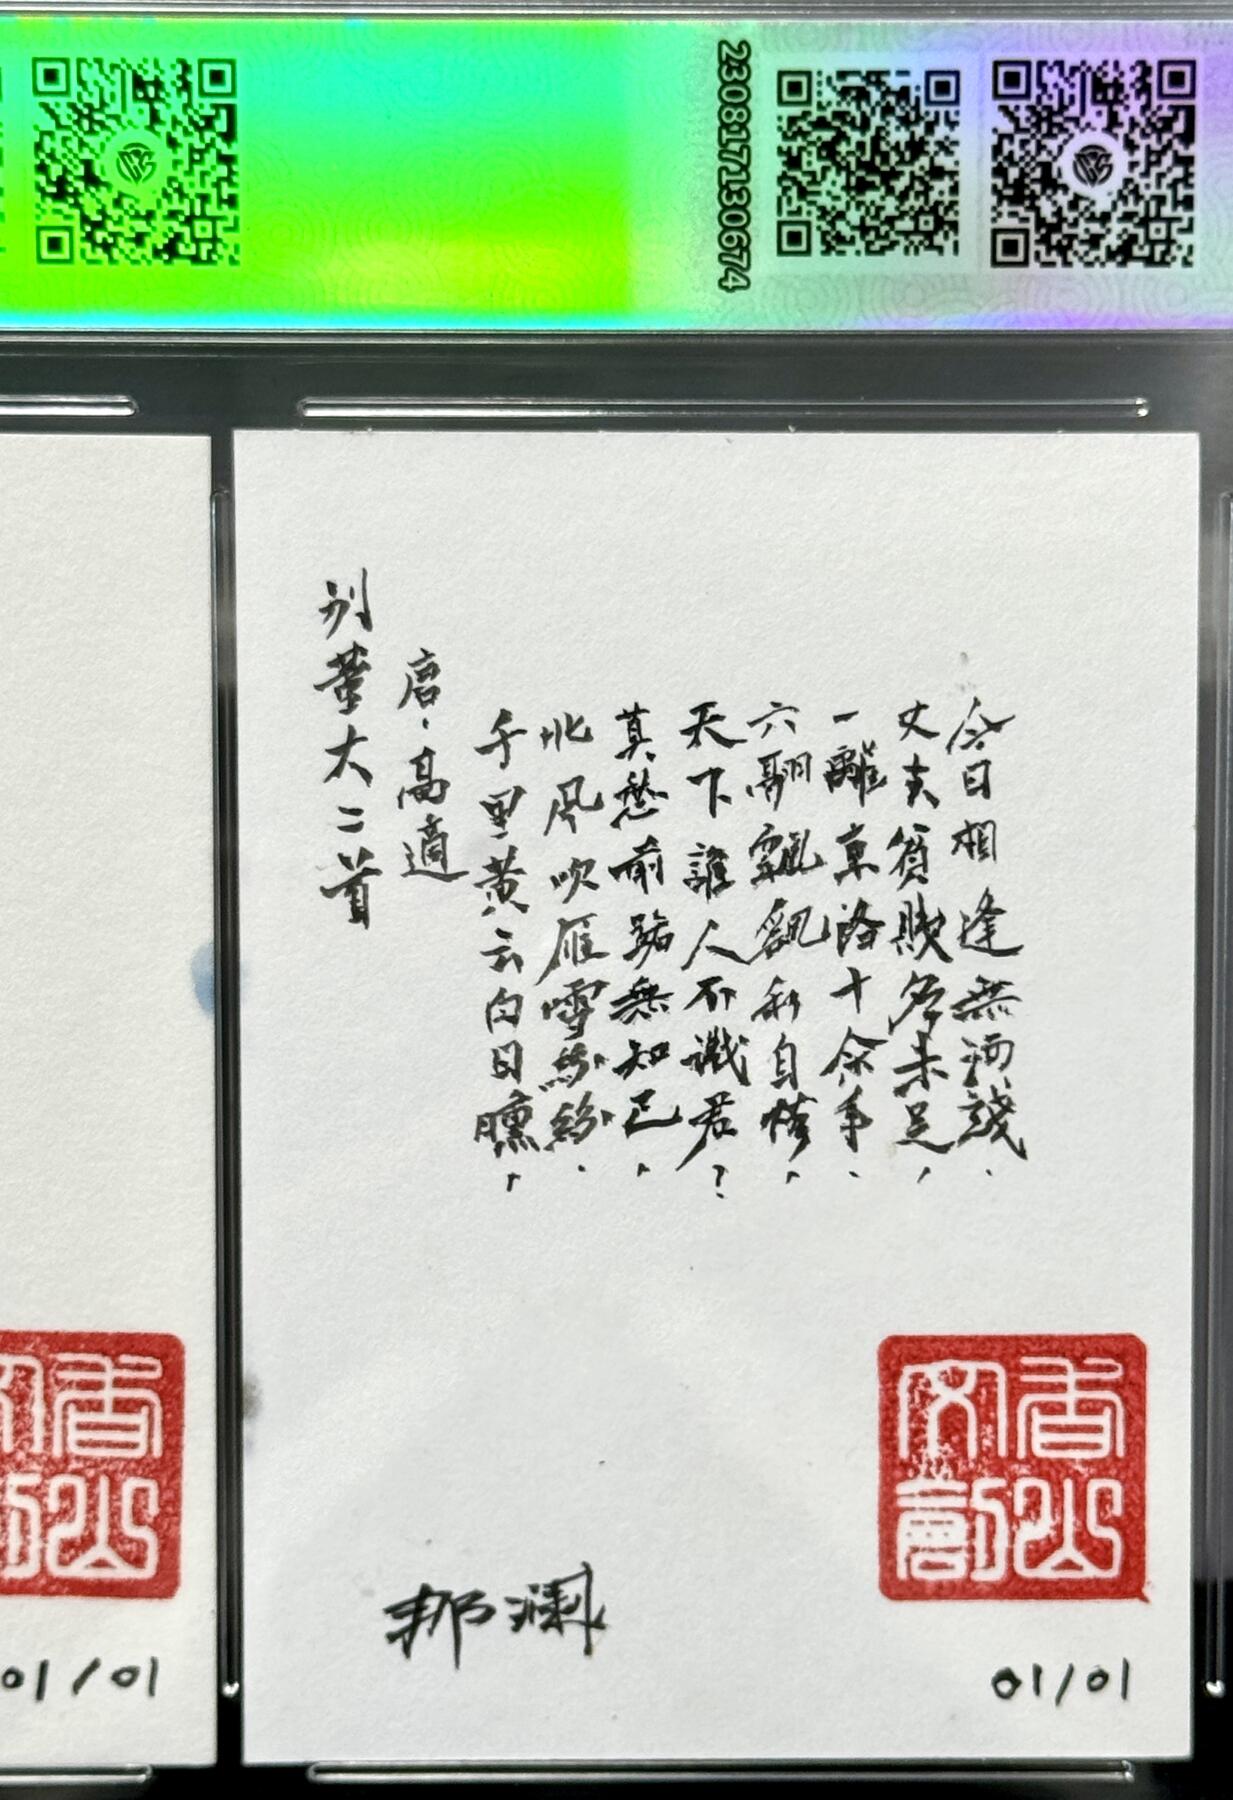 2308171130674
别董大二首
唐·高適
千里黄云白日曛,
北風吹雁雪紛紛.
莫愁前路無知己,
天下誰人不識君?
六翮飄飖私自憐,
一離京洛十余年.
丈夫貧賤应未足,
今日相逢無酒錢.
香山文創
01/01
香山
01/01